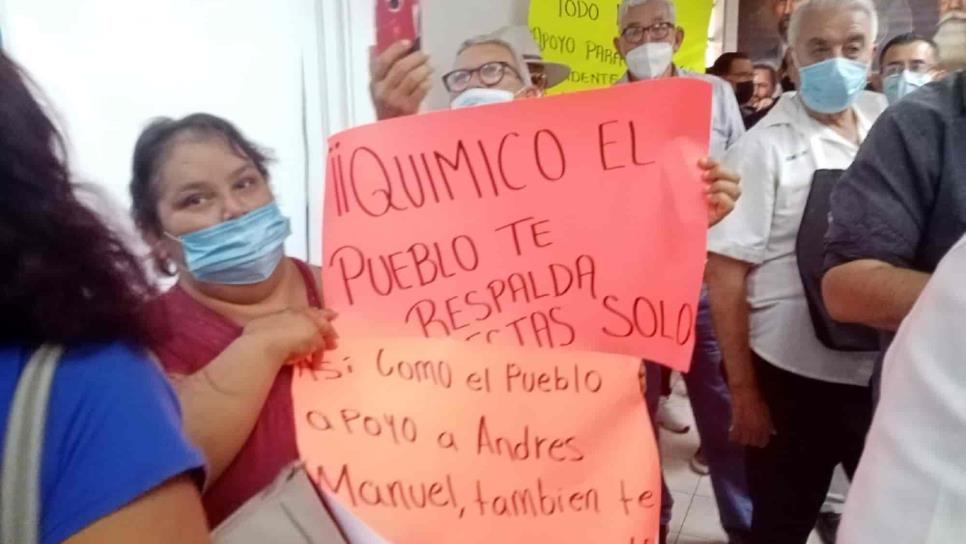 TODO
APOYO PARA
¡¡QUIMICO EL
PUEBLO TE
RESPALDA
ESTAS SOLO
Así Como el Pueblo
apoyo a Andres
Manuel, tambien te